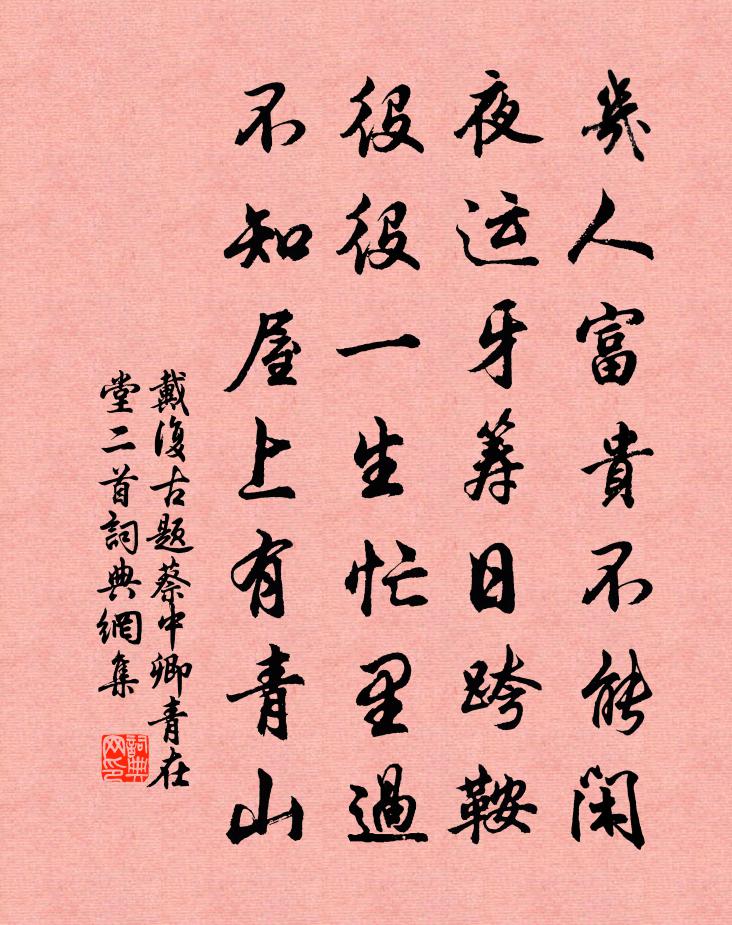 幾人富貴不能閑
夜运牙筹日跨鞍
役役一生忙里過
不知屋上有青山
戴復古题蔡中卿青在
堂二首詞典網集
詞典网印